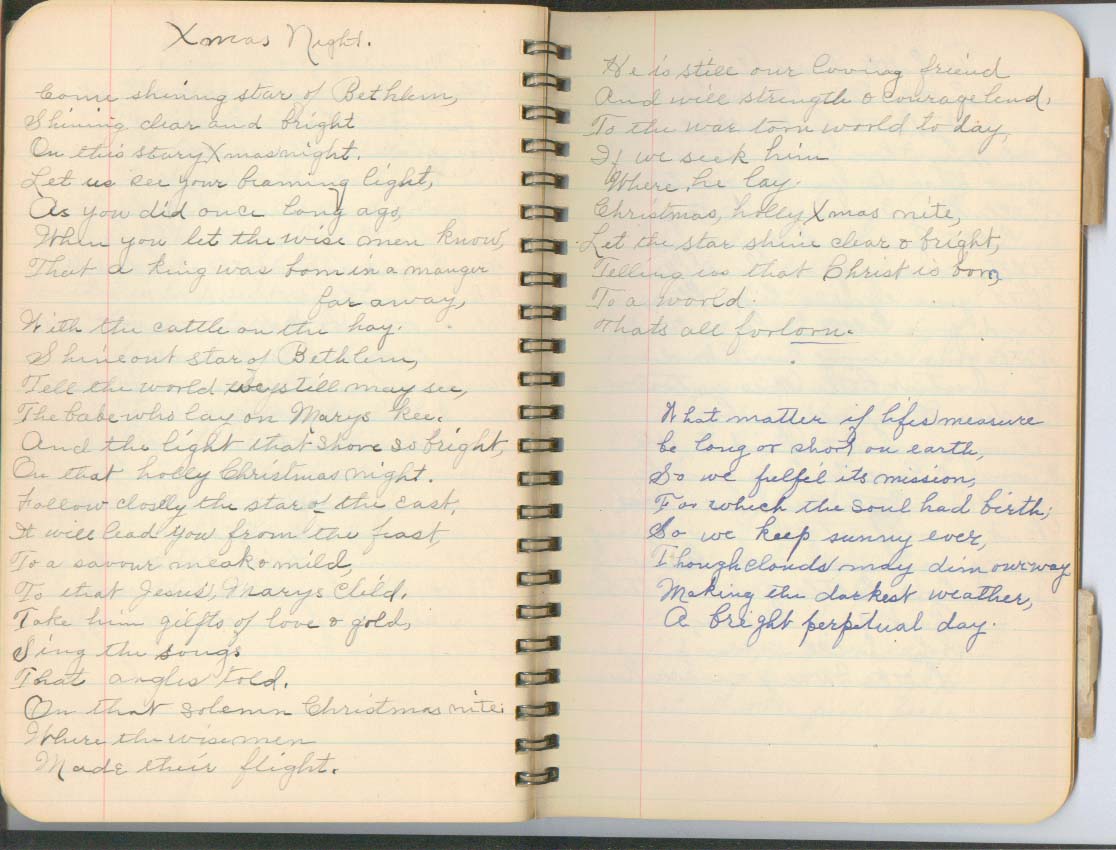 Xmas Night.
Come shining star of Bethlem,
Shining clear and bright
On this stary Xmas night.
Let us see your beaming light,
As you did once long ago,
When you let the wise men know,
That a king was born in a manger
far away,
With the cattle on the hay.
Shine out star of Bethlem,
Tell the world we still may see,
The babe who lay on Marys kee.
And the light that shone so bright,
On that holly Christmas night.
Follow closlly the star of the East,
It will lead you from the feast,
To a savour meak & mild,
To that Jesus, Marys Child.
Take him gilfts of love & gold,
Sing the songs
That angles told.
On that solemn Christmas nite.
Where the wise men
Made their flight.
He is still our loving friend
And will strength & courage lend,
To the war torn world to day,
If we seek him
Where he lay.
Christmas, holly Xmas nite,
Let the star shine clear & bright,
Telling us that Christ is born,
To a world.
Thats all forlorn.
What matter if lifes measure
be long or short on earth,
So we fulfil its mission,
For which the soul had birth;
So we keep sunny ever,
Though clouds may dim our way
Making the darkest weather,
A bright perpetual day.